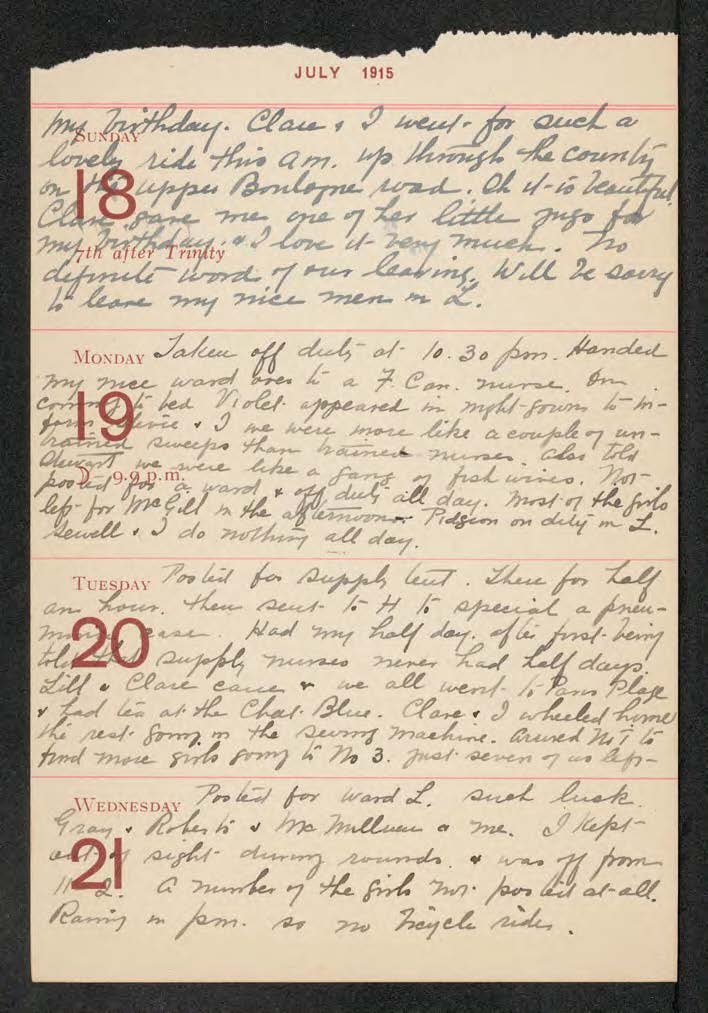 JULY 1915
SUNDAY
18
7th after Trinity
My birthday. Clare & I went for such a
lovely ride this am. up through the county
on the upper Boulogne road. Oh it is beautiful.
Clare gave me one of her little jugs for
my birthday. & I love it very much. No
definite word of our leaving. Will be sorry
to leave my nice men in L.
MONDAY
19
☽ 9.9 p.m.
Taken off duty at 10.30 pm. Handed
my nice ward over to a F. Can. nurse. On
coming to bed Violet appeared in night-gown to in-
form & I we were more like a couple of un-
trained sweeps than trained nurses. Also told
Stewart we were like a gang of fish wives. Not
posted for a ward & off duty all day. Most of the girls
left for McGill in the afternoon. Pidgeon on duty in L.
Sewell & I do nothing all day.
TUESDAY
20
Posted for supply tent. There for half
an hour. Then sent to H to special a pneu-
monia case. Had my half day. after first being
told that supply nurses never had half days.
Lill & Clare came & we all went to Paris Plage
& had tea at the Chat Blue. Clare & I wheeled home
the rest going in the sewing machine. to
find more girls going to No 3. just seven of us left
WEDNESDAY
21
Posted for ward L. such luck.
Gray & Roberts & McMillan & me. I kept
out of sight during rounds. & was off from
11 - 2. A number of the girls not posted at all.
Rainy in pm. so no bicycle rides.